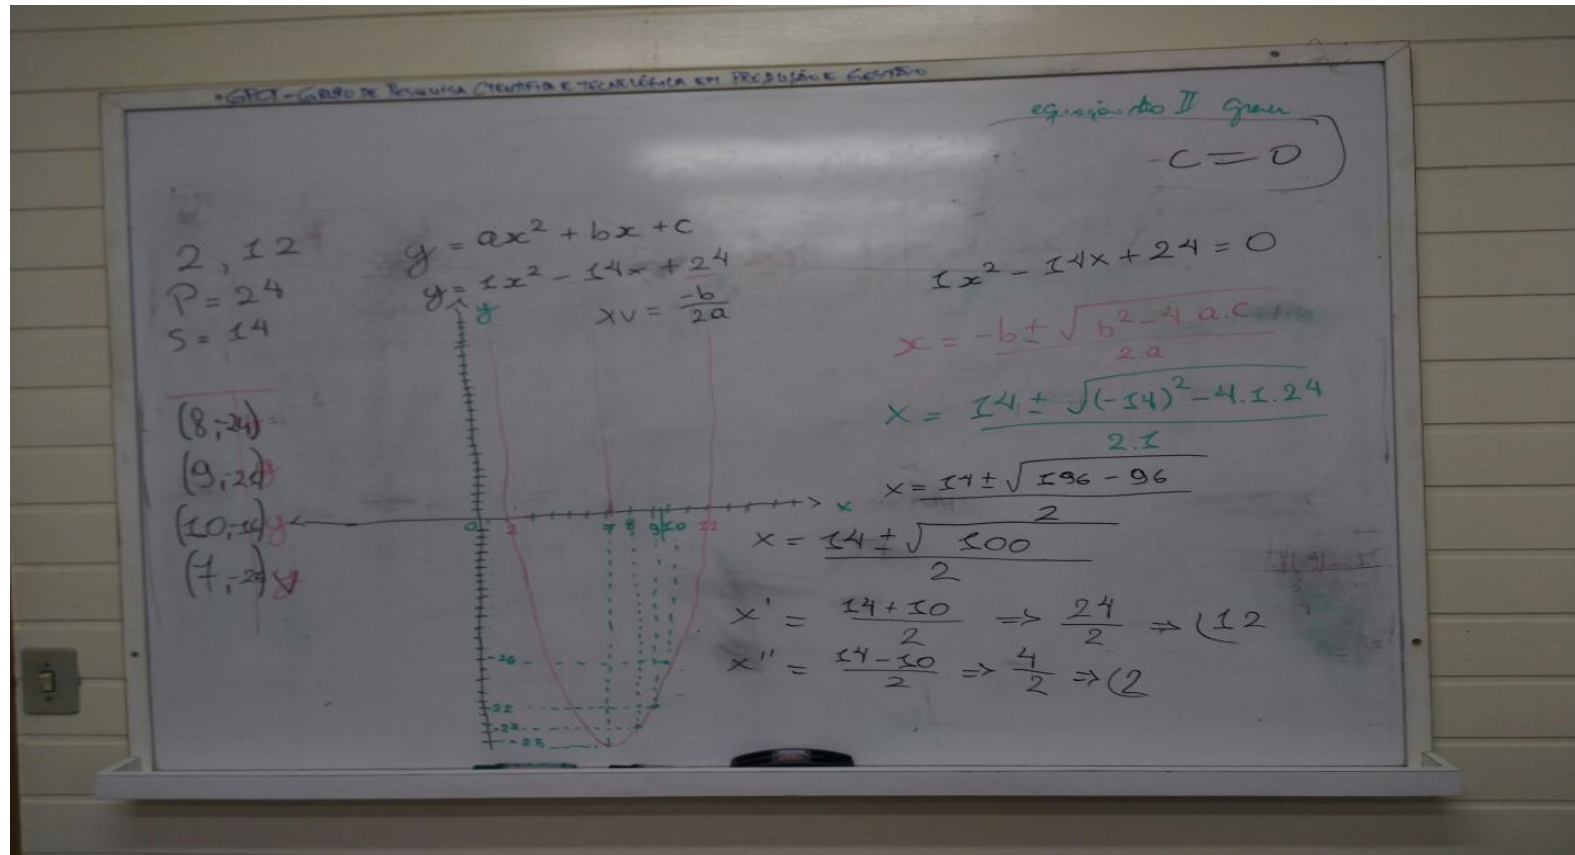 •GPCT-GRUPO DE PESQUISA CIENTÍFICA E TECNOLÓGICA EM PRODUÇÃO E GESTÃO
equação do II grau
-C=0
2,12
P=24
S=14
(8,-24)
(9,-21)
(10,-16)y
(7,-25)y
y=ax²+bx+c
y=1x²-14x+24
xv=-b/2a
y
x
0 2 7 8 9 10
-16
-25
1x²-14x+24=0
x=-b±√b²-4.a.c/2.a
x=14±√(-14)²-4.1.24/2.1
x=14±√196-96/2
x=14±√100/2
x'=14+10/2 => 24/2 => (12
x''=14-10/2 => 4/2 => (2